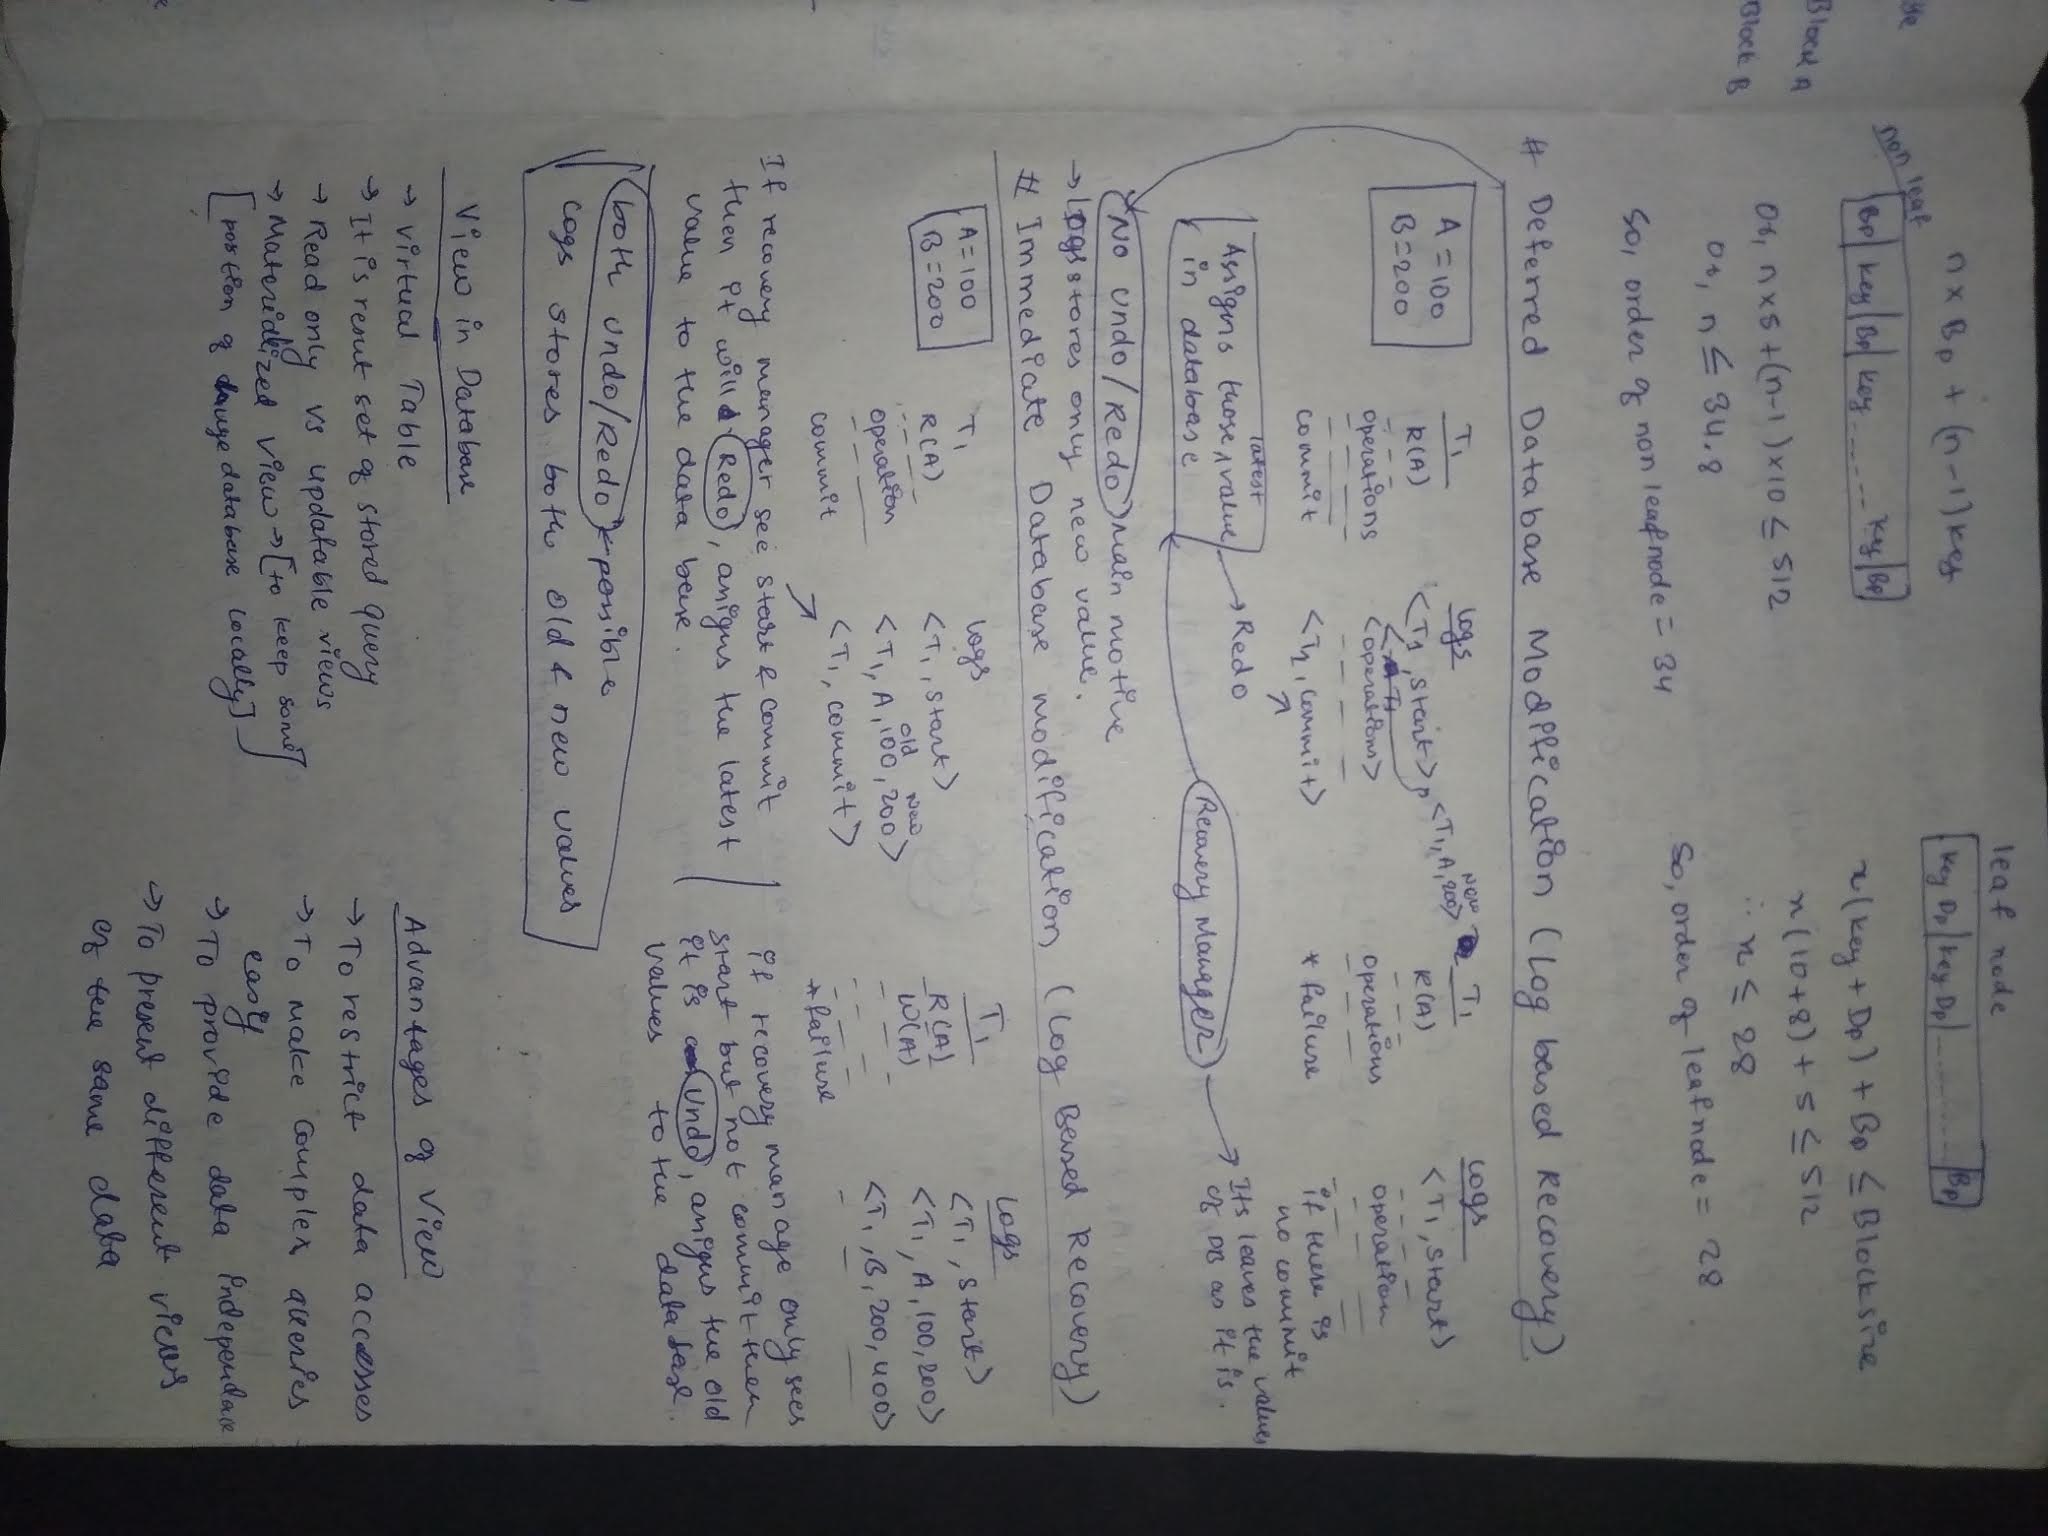 ve
Block A
Block B
n x Bp + (n-1) key
non leaf
Bp | key | Bp | key ...... key | Bp
Or, n x 5 + (n-1) x 10 ≤ 512
Or, n ≤ 34.8
So, order of non leaf node = 34
leaf node
key Dp | key Dp | ........ | Bp
x (key + Dp) + Bp ≤ Block size
x (10 + 8) + 5 ≤ 512
∴ x ≤ 28
So, order of leaf node = 28
# Deferred Database Modification (Log based Recovery).
A = 100
B = 200
T1
R(A)
operations
commit
Logs
<T1, start>
<T1, A, 200>
New
<operations>
<T1, commit>
T1
R(A)
operations
* failure
Logs
<T1, start>
operation
if there is
no commit
Assigns those latest value
in database
→ Redo
Recovery Manager
→ Its leaves the values
of DB as it is.
No undo/Redo main motive
→ logs stores only new value.
# Immediate Database modification (Log Based Recovery)
A = 100
B = 200
T1
R(A)
operation
commit
Logs
<T1, start>
old New
<T1, A, 100, 200>
<T1, commit>
T1
R(A)
W(A)
* failure
Logs
<T1, start>
<T1, A, 100, 200>
<T1, B, 200, 400>
If recovery manager see start & commit
then it will Redo, assigns the latest
value to the data base.
if recovery manage only sees
start but not commit then
it is Undo, assigns the old
values to the database.
both undo/Redo possible
logs stores both old & new values
View in Database
→ virtual Table
→ It is result set of stored query
→ Read only vs updatable views
→ Materialized view → [to keep some
[portion of database locally]
Advantages of View
→ To restrict data accesses
→ To make complex queries
easy
→ To provide data independance
→ To present different views
of the same data